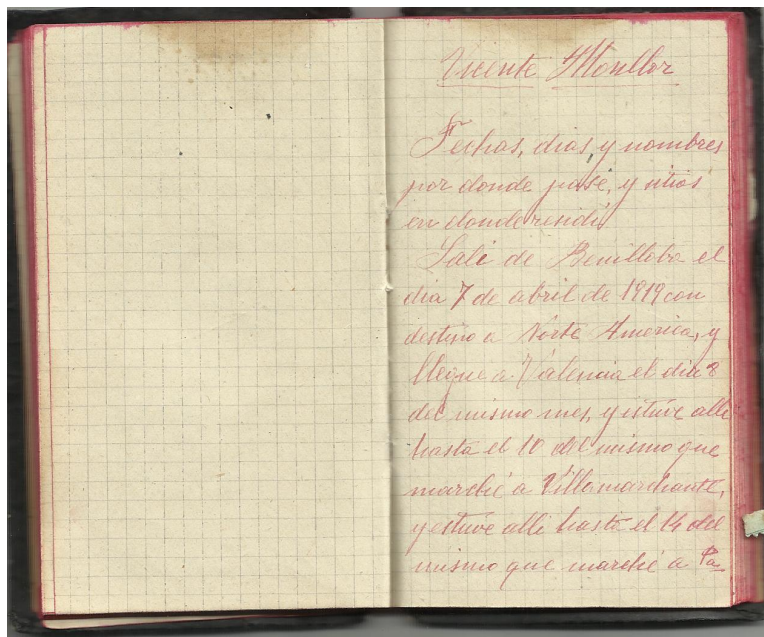 Vicente Monllor
Fechas, dias, y nombres
por donde pasé, y sitios
en donde residí
Sali de Benilloba el
dia 7 de abril de 1919 con
destino a Norte America, y
llegue a Valencia el dia 8
del mismo mes, y estuve alli
hasta el 10 del mismo que
marché a Villamarchante,
y estuve alli hasta el 14 del
mismo que marché a Pa-